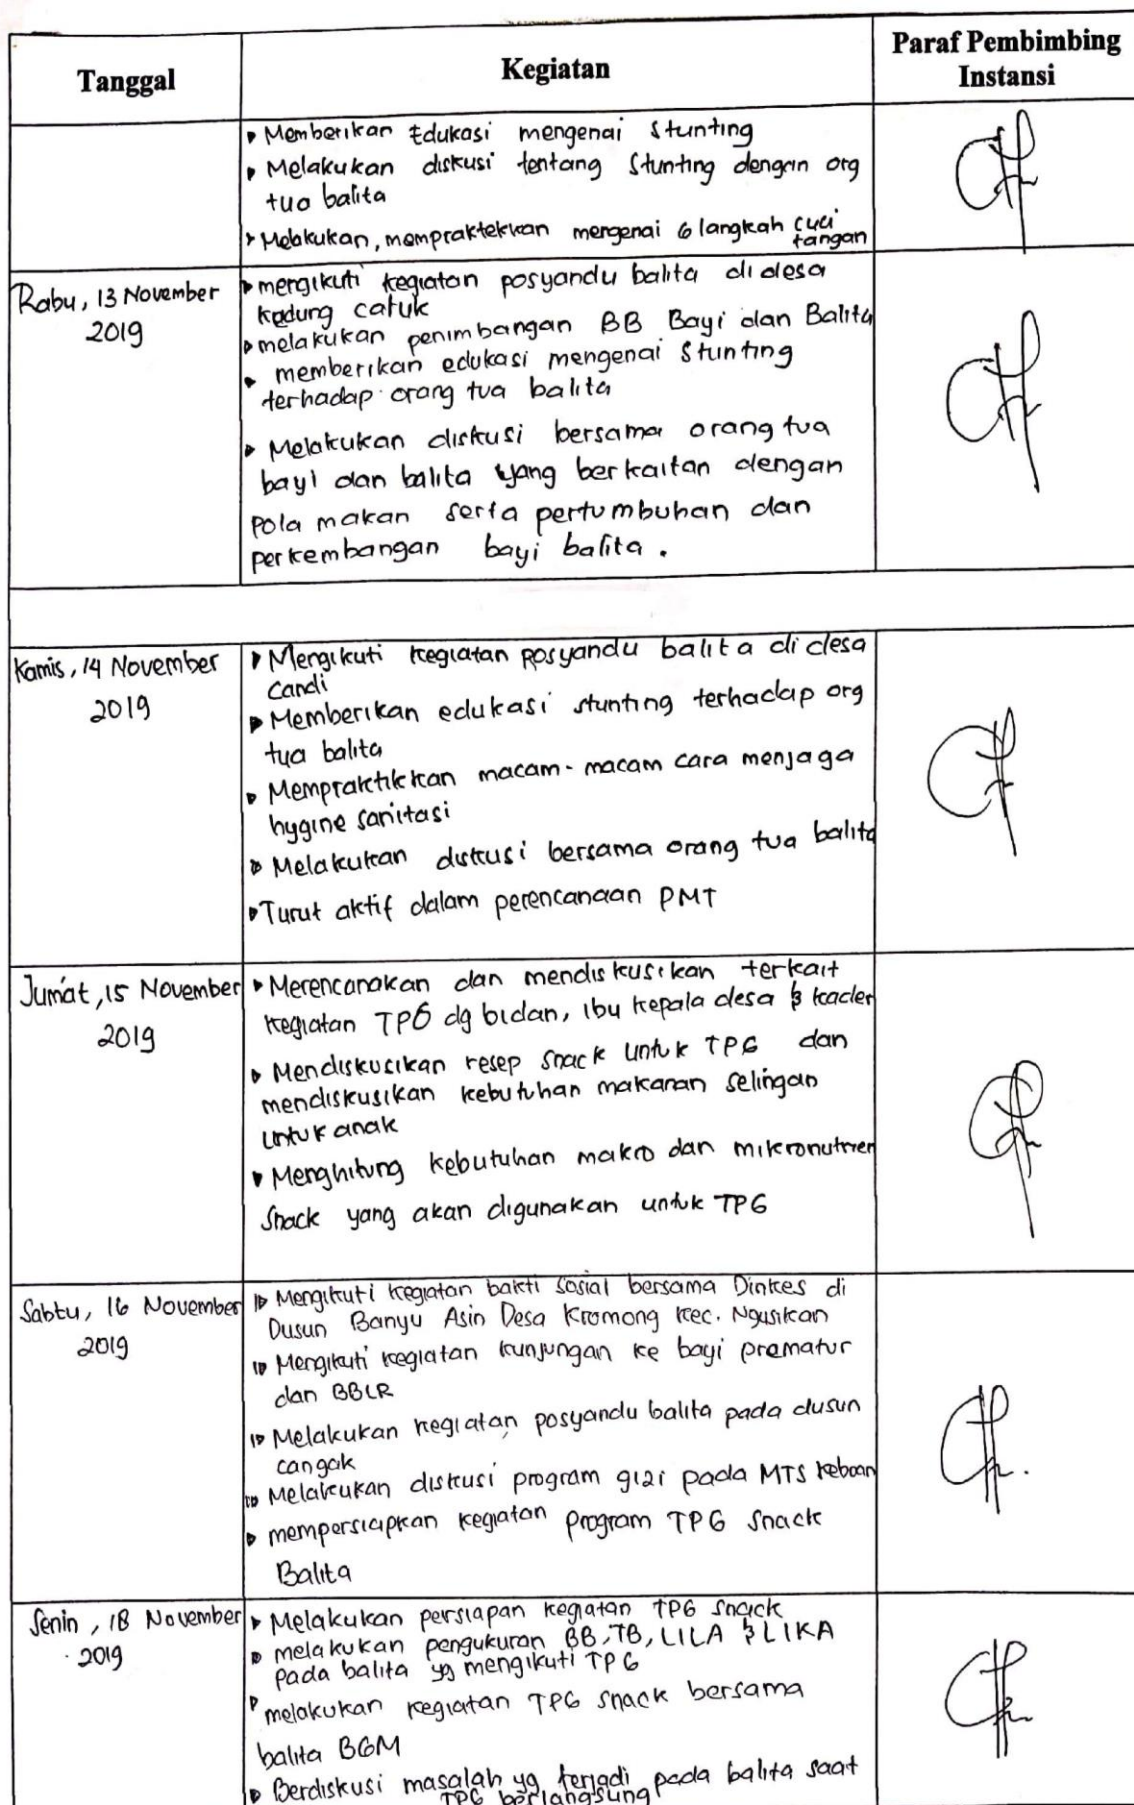 Tanggal
Kegiatan
Paraf Pembimbing
Instansi
Memberikan Edukasi mengenai Stunting
Melakukan diskusi tentang Stunting dengan org
tua balita
Melakukan, mempraktekkan mengenai 6 langkah cuci
tangan
Rabu, 13 November
2019
mengikuti kegiatan posyandu balita di desa
kedung catuk
melakukan penimbangan BB Bayi dan Balita
memberikan edukasi mengenai Stunting
terhadap orang tua balita
Melakukan diskusi bersama orang tua
bayi dan balita yang berkaitan dengan
pola makan serta pertumbuhan dan
perkembangan bayi balita.
Kamis, 14 November
2019
Mengikuti kegiatan posyandu balita di desa
Candi
Memberikan edukasi stunting terhadap org
tua balita
Mempraktikkan macam-macam cara menjaga
hygine sanitasi
Melakukan diskusi bersama orang tua balita
Turut aktif dalam perencanaan PMT
Jum'at, 15 November
2019
Merencanakan dan mendiskusikan terkait
kegiatan TPG dg bidan, ibu kepala desa & kader
Mendiskusikan resep snack untuk TPG dan
mendiskusikan kebutuhan makanan selingan
untuk anak
Menghitung kebutuhan makro dan mikronutrien
Snack yang akan digunakan untuk TPG
Sabtu, 16 November
2019
Mengikuti kegiatan bakti sosial bersama Dinkes di
Dusun Banyu Asin Desa Kromong Kec. Ngusikan
Mengikuti kegiatan kunjungan ke bayi prematur
dan BBLR
Melakukan kegiatan posyandu balita pada dusun
cangak
Melakukan diskusi program gizi pada MTS Keboan
mempersiapkan kegiatan program TPG Snack
Balita
Senin, 18 November
2019
Melakukan persiapan kegiatan TPG Snack
melakukan pengukuran BB, TB, LILA & LIKA
pada balita yg mengikuti TPG
melakukan kegiatan TPG snack bersama
balita BGM
Berdiskusi masalah yg terjadi pada balita saat
TPG berlangsung